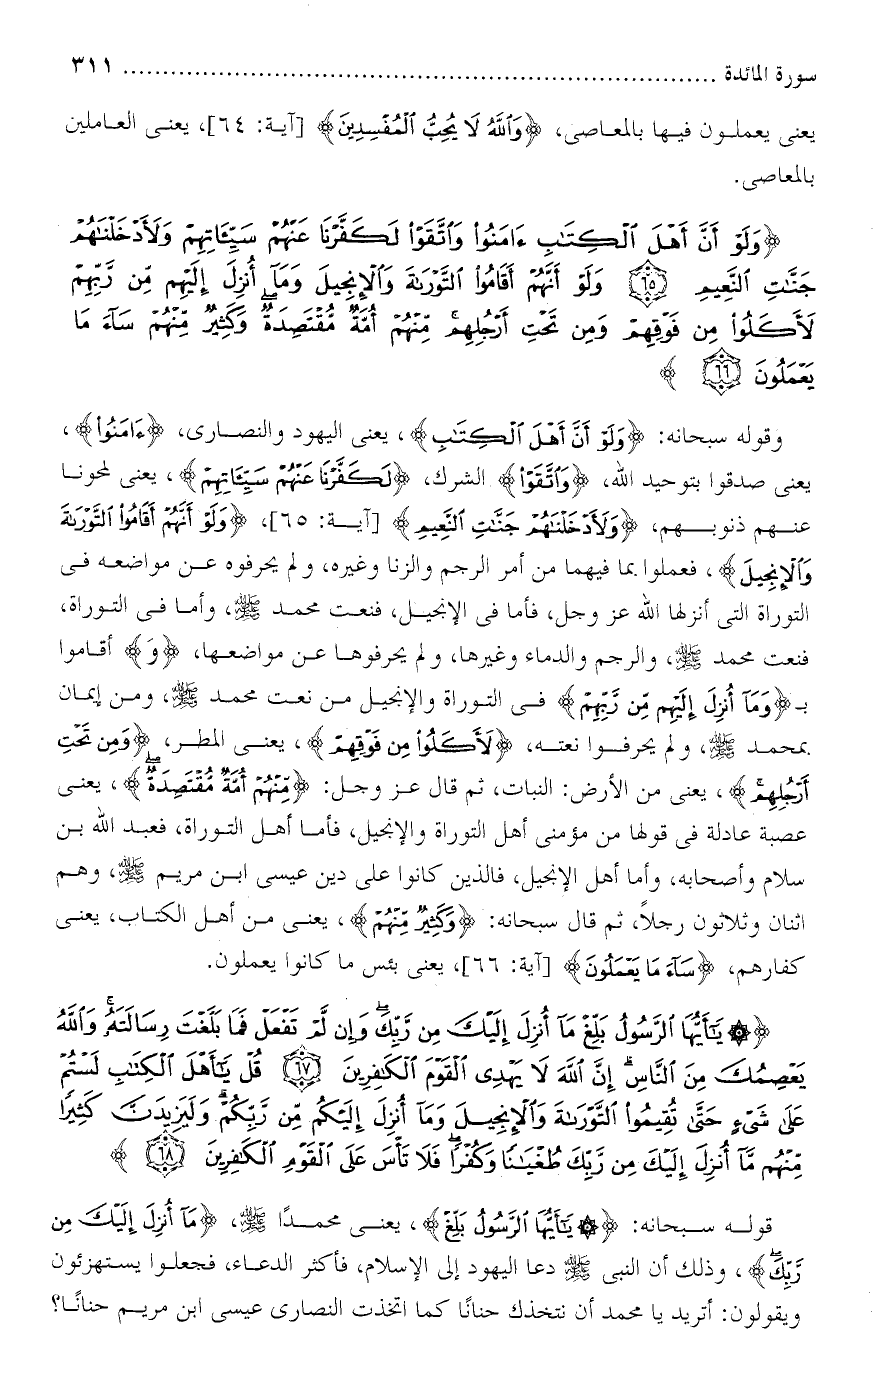 سورة المائدة ........................................................................... ٣١١
يعنى يعملون فيها بالمعاصى، ﴿وَٱللَّهُ لَا يُحِبُّ ٱلْمُفْسِدِينَ﴾ [آية: ٦٤]، يعنى العاملين
بالمعاصى.
﴿وَلَوْ أَنَّ أَهْلَ ٱلْكِتَٰبِ ءَامَنُوا۟ وَٱتَّقَوْا۟ لَكَفَّرْنَا عَنْهُمْ سَيِّـَٔاتِهِمْ وَلَأَدْخَلْنَٰهُمْ
جَنَّٰتِ ٱلنَّعِيمِ ٦٥ وَلَوْ أَنَّهُمْ أَقَامُوا۟ ٱلتَّوْرَىٰةَ وَٱلْإِنجِيلَ وَمَآ أُنزِلَ إِلَيْهِم مِّن رَّبِّهِمْ
لَأَكَلُوا۟ مِن فَوْقِهِمْ وَمِن تَحْتِ أَرْجُلِهِم ۚ مِّنْهُمْ أُمَّةٌ مُّقْتَصِدَةٌ ۖ وَكَثِيرٌ مِّنْهُمْ سَآءَ مَا
يَعْمَلُونَ ٦٦ ﴾
وقوله سبحانه: ﴿وَلَوْ أَنَّ أَهْلَ ٱلْكِتَٰبِ﴾، يعنى اليهود والنصارى، ﴿ءَامَنُوا۟﴾،
يعنى صدقوا بتوحيد الله، ﴿وَٱتَّقَوْا۟﴾ الشرك، ﴿لَكَفَّرْنَا عَنْهُمْ سَيِّـَٔاتِهِمْ﴾، يعنى لمحونا
عنهم ذنوبهم، ﴿وَلَأَدْخَلْنَٰهُمْ جَنَّٰتِ ٱلنَّعِيمِ﴾ [آية: ٦٥]، ﴿وَلَوْ أَنَّهُمْ أَقَامُوا۟ ٱلتَّوْرَىٰةَ
وَٱلْإِنجِيلَ﴾، فعملوا بما فيهما من أمر الرجم والزنا وغيره، ولم يحرفوه عن مواضعه فى
التوراة التى أنزلها الله عز وجل، فأما فى الإنجيل، فنعت محمد ﷺ، وأما فى التوراة،
فنعت محمد ﷺ، والرجم والدماء وغيرها، ولم يحرفوها عن مواضعها، ﴿وَ﴾ أقاموا
بـ﴿وَمَآ أُنزِلَ إِلَيْهِم مِّن رَّبِّهِمْ﴾ فى التوراة والإنجيل من نعت محمد ﷺ، ومن إيمان
بمحمد ﷺ، ولم يحرفوا نعته، ﴿لَأَكَلُوا۟ مِن فَوْقِهِمْ﴾، يعنى المطر، ﴿وَمِن تَحْتِ
أَرْجُلِهِم ۚ﴾، يعنى من الأرض: النبات، ثم قال عز وجل: ﴿مِّنْهُمْ أُمَّةٌ مُّقْتَصِدَةٌ ۖ﴾، يعنى
عصبة عادلة فى قولها من مؤمنى أهل التوراة والإنجيل، فأما أهل التوراة، فعبد الله بن
سلام وأصحابه، وأما أهل الإنجيل، فالذين كانوا على دين عيسى ابن مريم ﷺ، وهم
اثنان وثلاثون رجلاً، ثم قال سبحانه: ﴿وَكَثِيرٌ مِّنْهُمْ﴾، يعنى من أهل الكتاب، يعنى
كفارهم، ﴿سَآءَ مَا يَعْمَلُونَ﴾ [آية: ٦٦]، يعنى بئس ما كانوا يعملون.
﴿۞ يَٰٓأَيُّهَا ٱلرَّسُولُ بَلِّغْ مَآ أُنزِلَ إِلَيْكَ مِن رَّبِّكَ ۖ وَإِن لَّمْ تَفْعَلْ فَمَا بَلَّغْتَ رِسَالَتَهُۥ ۚ وَٱللَّهُ
يَعْصِمُكَ مِنَ ٱلنَّاسِ ۗ إِنَّ ٱللَّهَ لَا يَهْدِى ٱلْقَوْمَ ٱلْكَٰفِرِينَ ٦٧ قُلْ يَٰٓأَهْلَ ٱلْكِتَٰبِ لَسْتُمْ
عَلَىٰ شَىْءٍ حَتَّىٰ تُقِيمُوا۟ ٱلتَّوْرَىٰةَ وَٱلْإِنجِيلَ وَمَآ أُنزِلَ إِلَيْكُم مِّن رَّبِّكُمْ ۗ وَلَيَزِيدَنَّ كَثِيرًا
مِّنْهُم مَّآ أُنزِلَ إِلَيْكَ مِن رَّبِّكَ طُغْيَٰنًا وَكُفْرًا ۖ فَلَا تَأْسَ عَلَى ٱلْقَوْمِ ٱلْكَٰفِرِينَ ٦٨ ﴾
قوله سبحانه: ﴿۞ يَٰٓأَيُّهَا ٱلرَّسُولُ بَلِّغْ﴾، يعنى محمدًا ﷺ، ﴿مَآ أُنزِلَ إِلَيْكَ مِن
رَّبِّكَ ۖ﴾، وذلك أن النبى ﷺ دعا اليهود إلى الإسلام، فأكثر الدعاء، فجعلوا يستهزئون
ويقولون: أتريد يا محمد أن نتخذك حنانًا كما اتخذت النصارى عيسى ابن مريم حنانًا؟